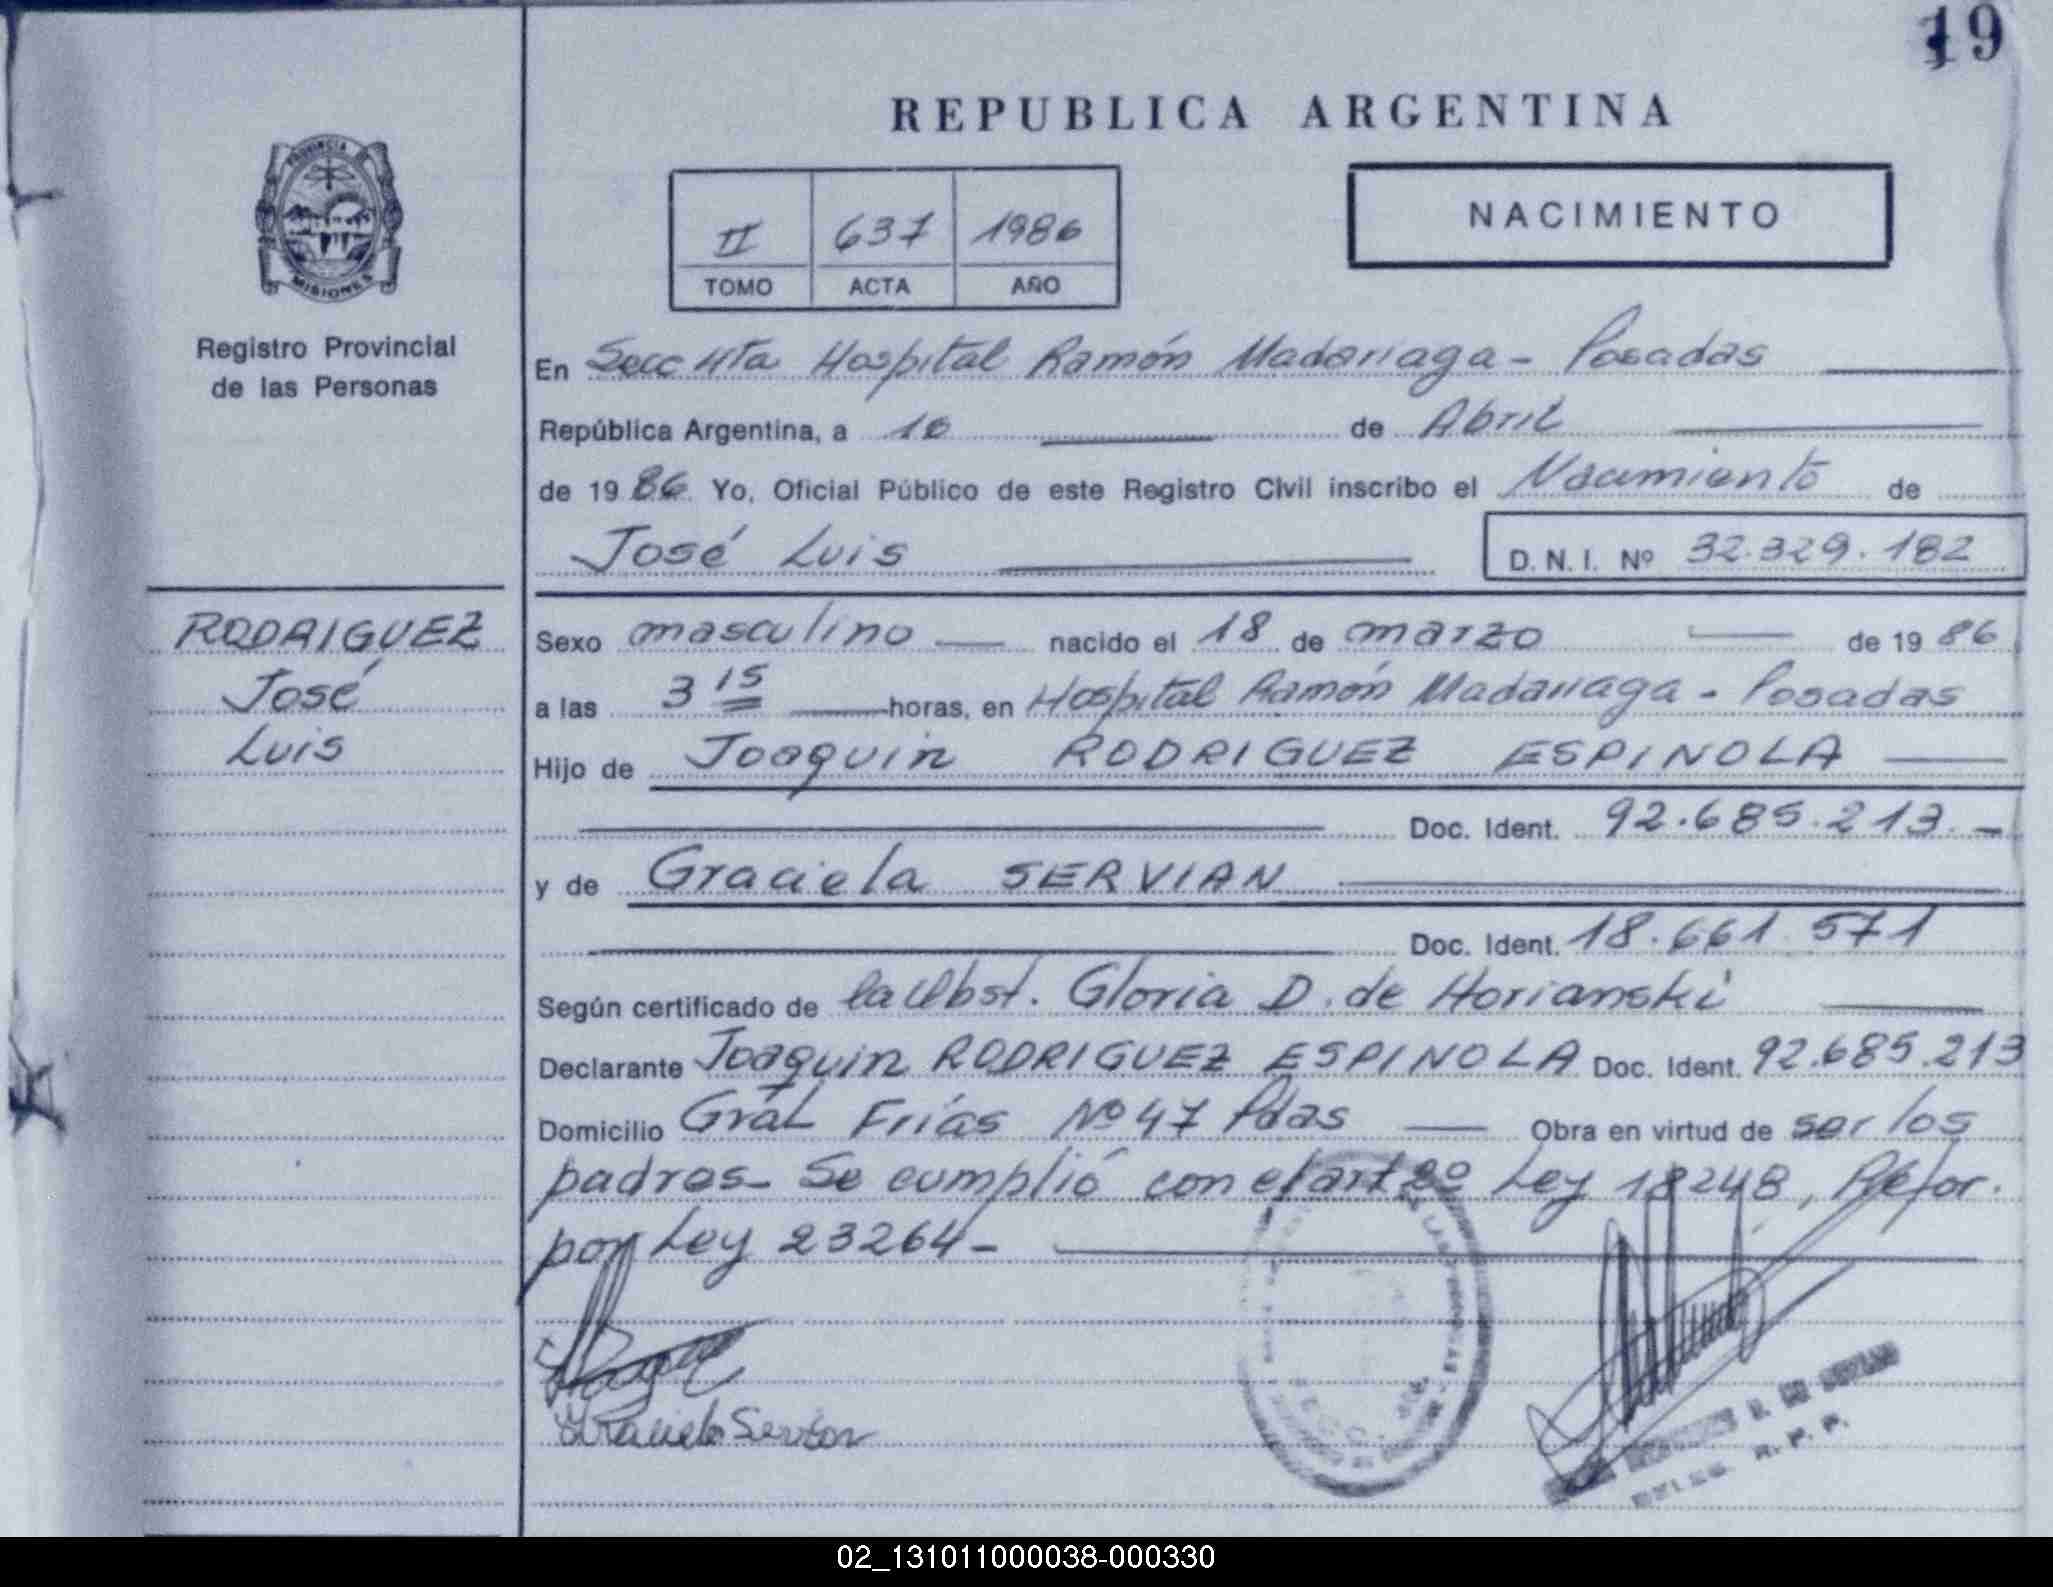 19
REPUBLICA ARGENTINA
PROVINCIA DE
MISIONES
Registro Provincial
de las Personas
II 637 1986
TOMO ACTA AÑO
NACIMIENTO
En Secc 4ta Hospital Ramón Madariaga - Posadas
República Argentina, a 16 de Abril
de 1986 Yo, Oficial Público de este Registro Civil inscribo el Nacimiento de
José Luis D. N. I. Nº 32.329.182
RODRIGUEZ
José
Luis
Sexo masculino nacido el 18 de marzo de 1986
a las 3 15 horas, en Hospital Ramón Madariaga - Posadas
Hijo de Joaquin RODRIGUEZ ESPINOLA
Doc. Ident. 92.685.213.-
y de Graciela SERVIAN
Doc. Ident. 18.661.571
Según certificado de la Obst. Gloria D. de Horianski
Declarante Joaquin RODRIGUEZ ESPINOLA Doc. Ident. 92.685.213
Domicilio Gral Frías Nº 47 Pdas Obra en virtud de ser los
padres- Se cumplió con el art 2º Ley 18248, Refor.
por Ley 23264-
Graciela Servian
02_131011000038-000330